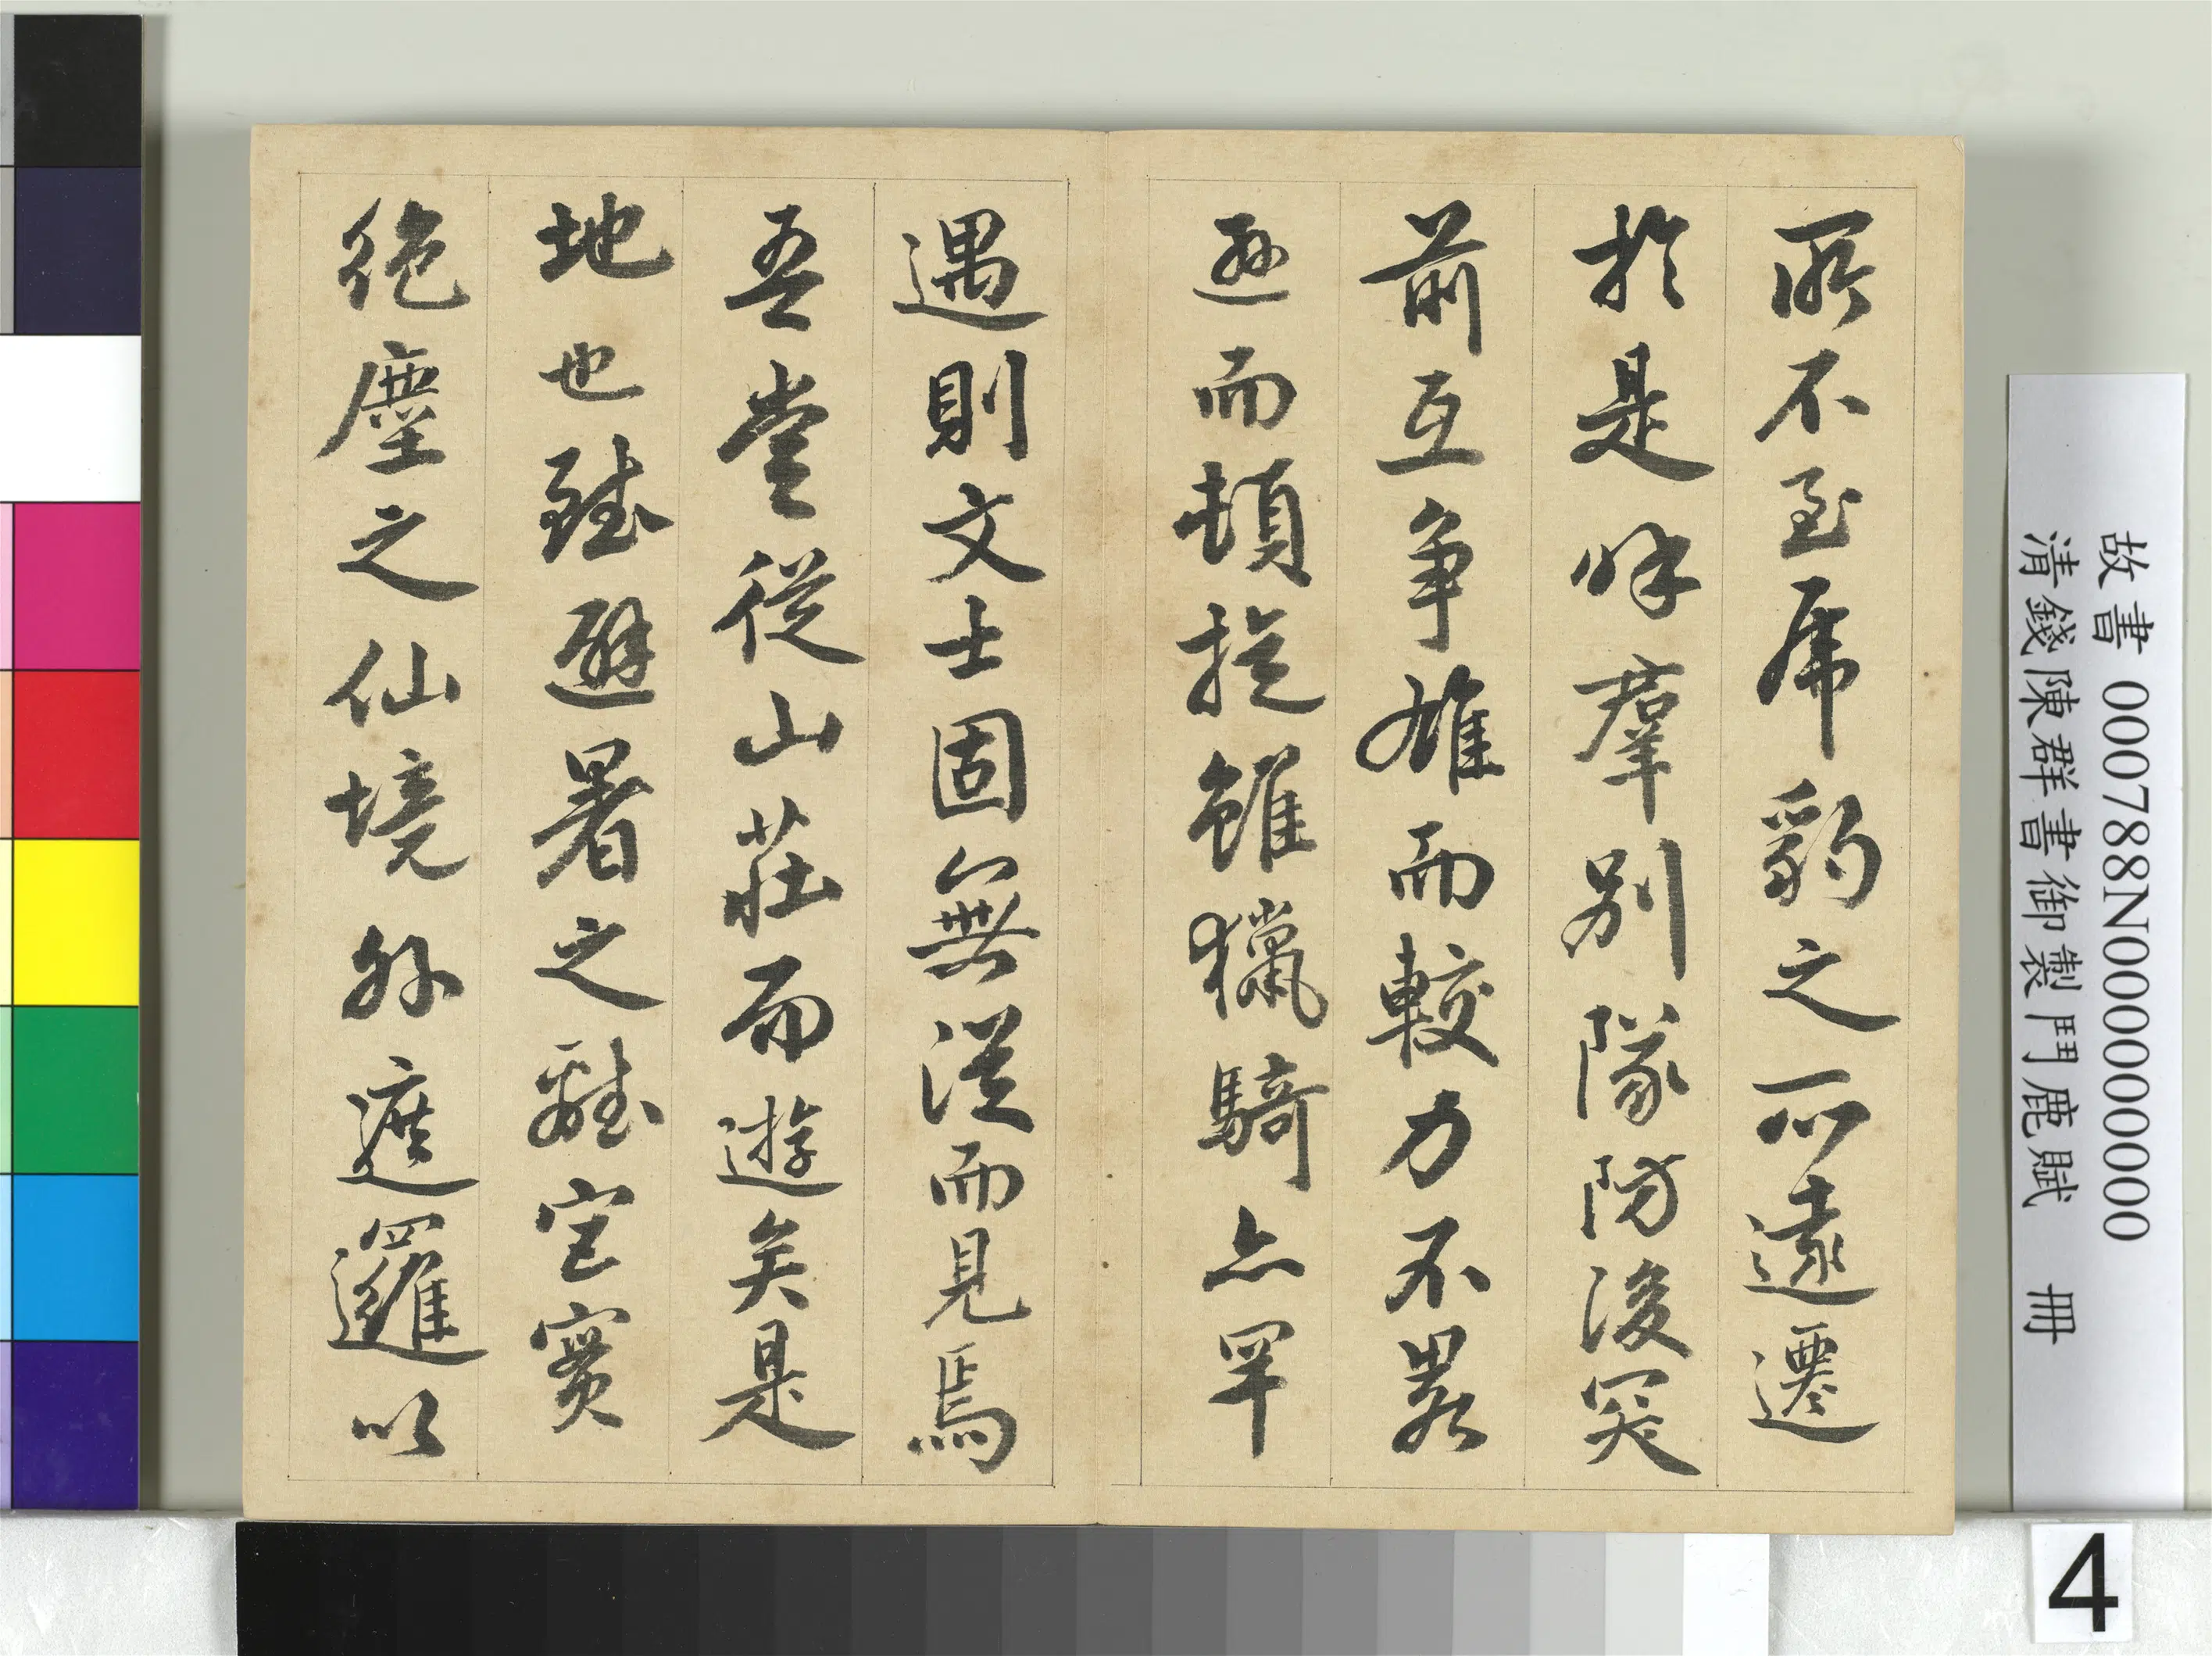 所不至虎豹之所遠遷
於是呼羣別隊防後突
前互爭雄而較力不畧
遜而頓雖獵騎亦罕
遇則文士固無從而見焉
吾嘗從山莊而遊矣是
地也雖避暑之離宮實
絕塵之仙境外遮邏以
故書 000788N000000000
清錢陳群書御製鬥鹿賦 冊
4